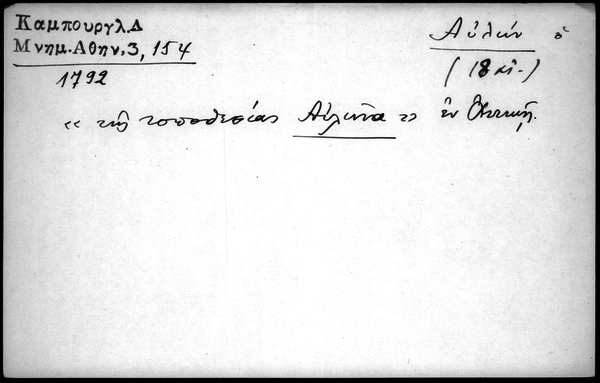 Καμπουργλ.Δ
Μνημ.Αθην.3, 154
1792
Αὐλών ὁ
(18 κῖ.)
« τῆς τοποθεσίας Αὐλῶνα » ἐν Ἀττικῇ.